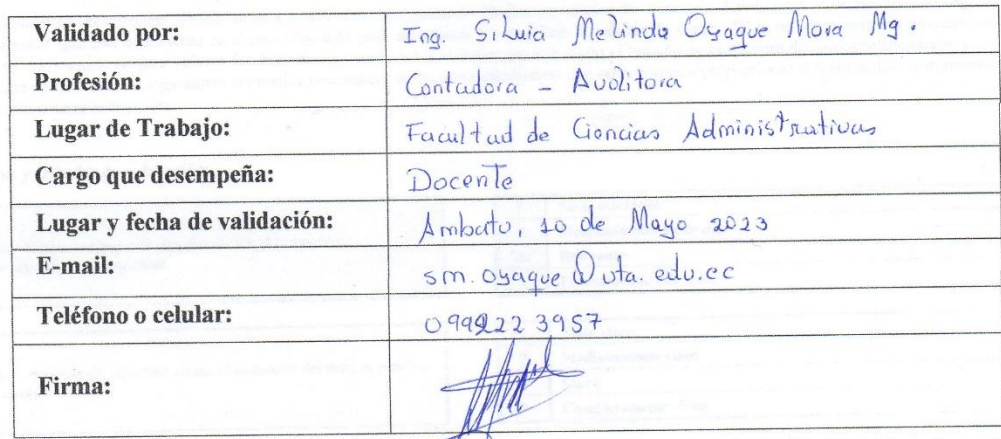 Validado por: Ing. Silvia Melinda Oyaque Mora Mg.
Profesión: Contadora - Auditora
Lugar de Trabajo: Facultad de Ciencias Administrativas
Cargo que desempeña: Docente
Lugar y fecha de validación: Ambato, 10 de Mayo 2023
E-mail: sm.oyaque@uta.edu.ec
Teléfono o celular: 0999223957
Firma: